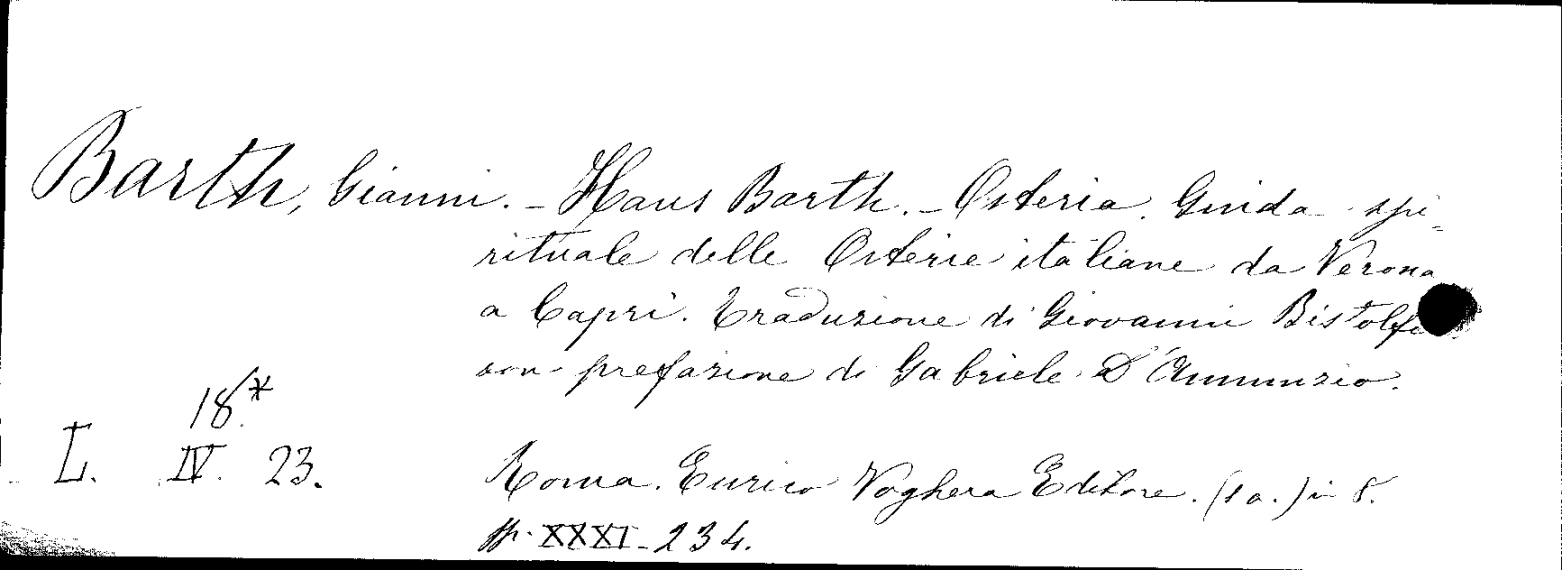 Barth, Gianni. - Hans Barth. - Osteria. Guida spi=
rituale delle Osterie italiane da Verona
a Capri. Traduzione di Giovanni Bistolfi
con prefazione di Gabriele D'Annunzio.
18.*
L. IV. 23.
Roma. Enrico Voghera Editore. (s a.) in 8.
pp. XXXI - 234.